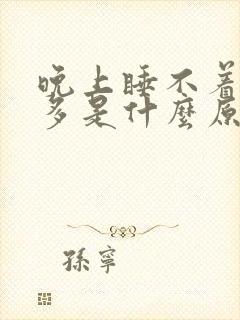 晚上睡不着
多是什麼原
孫寧